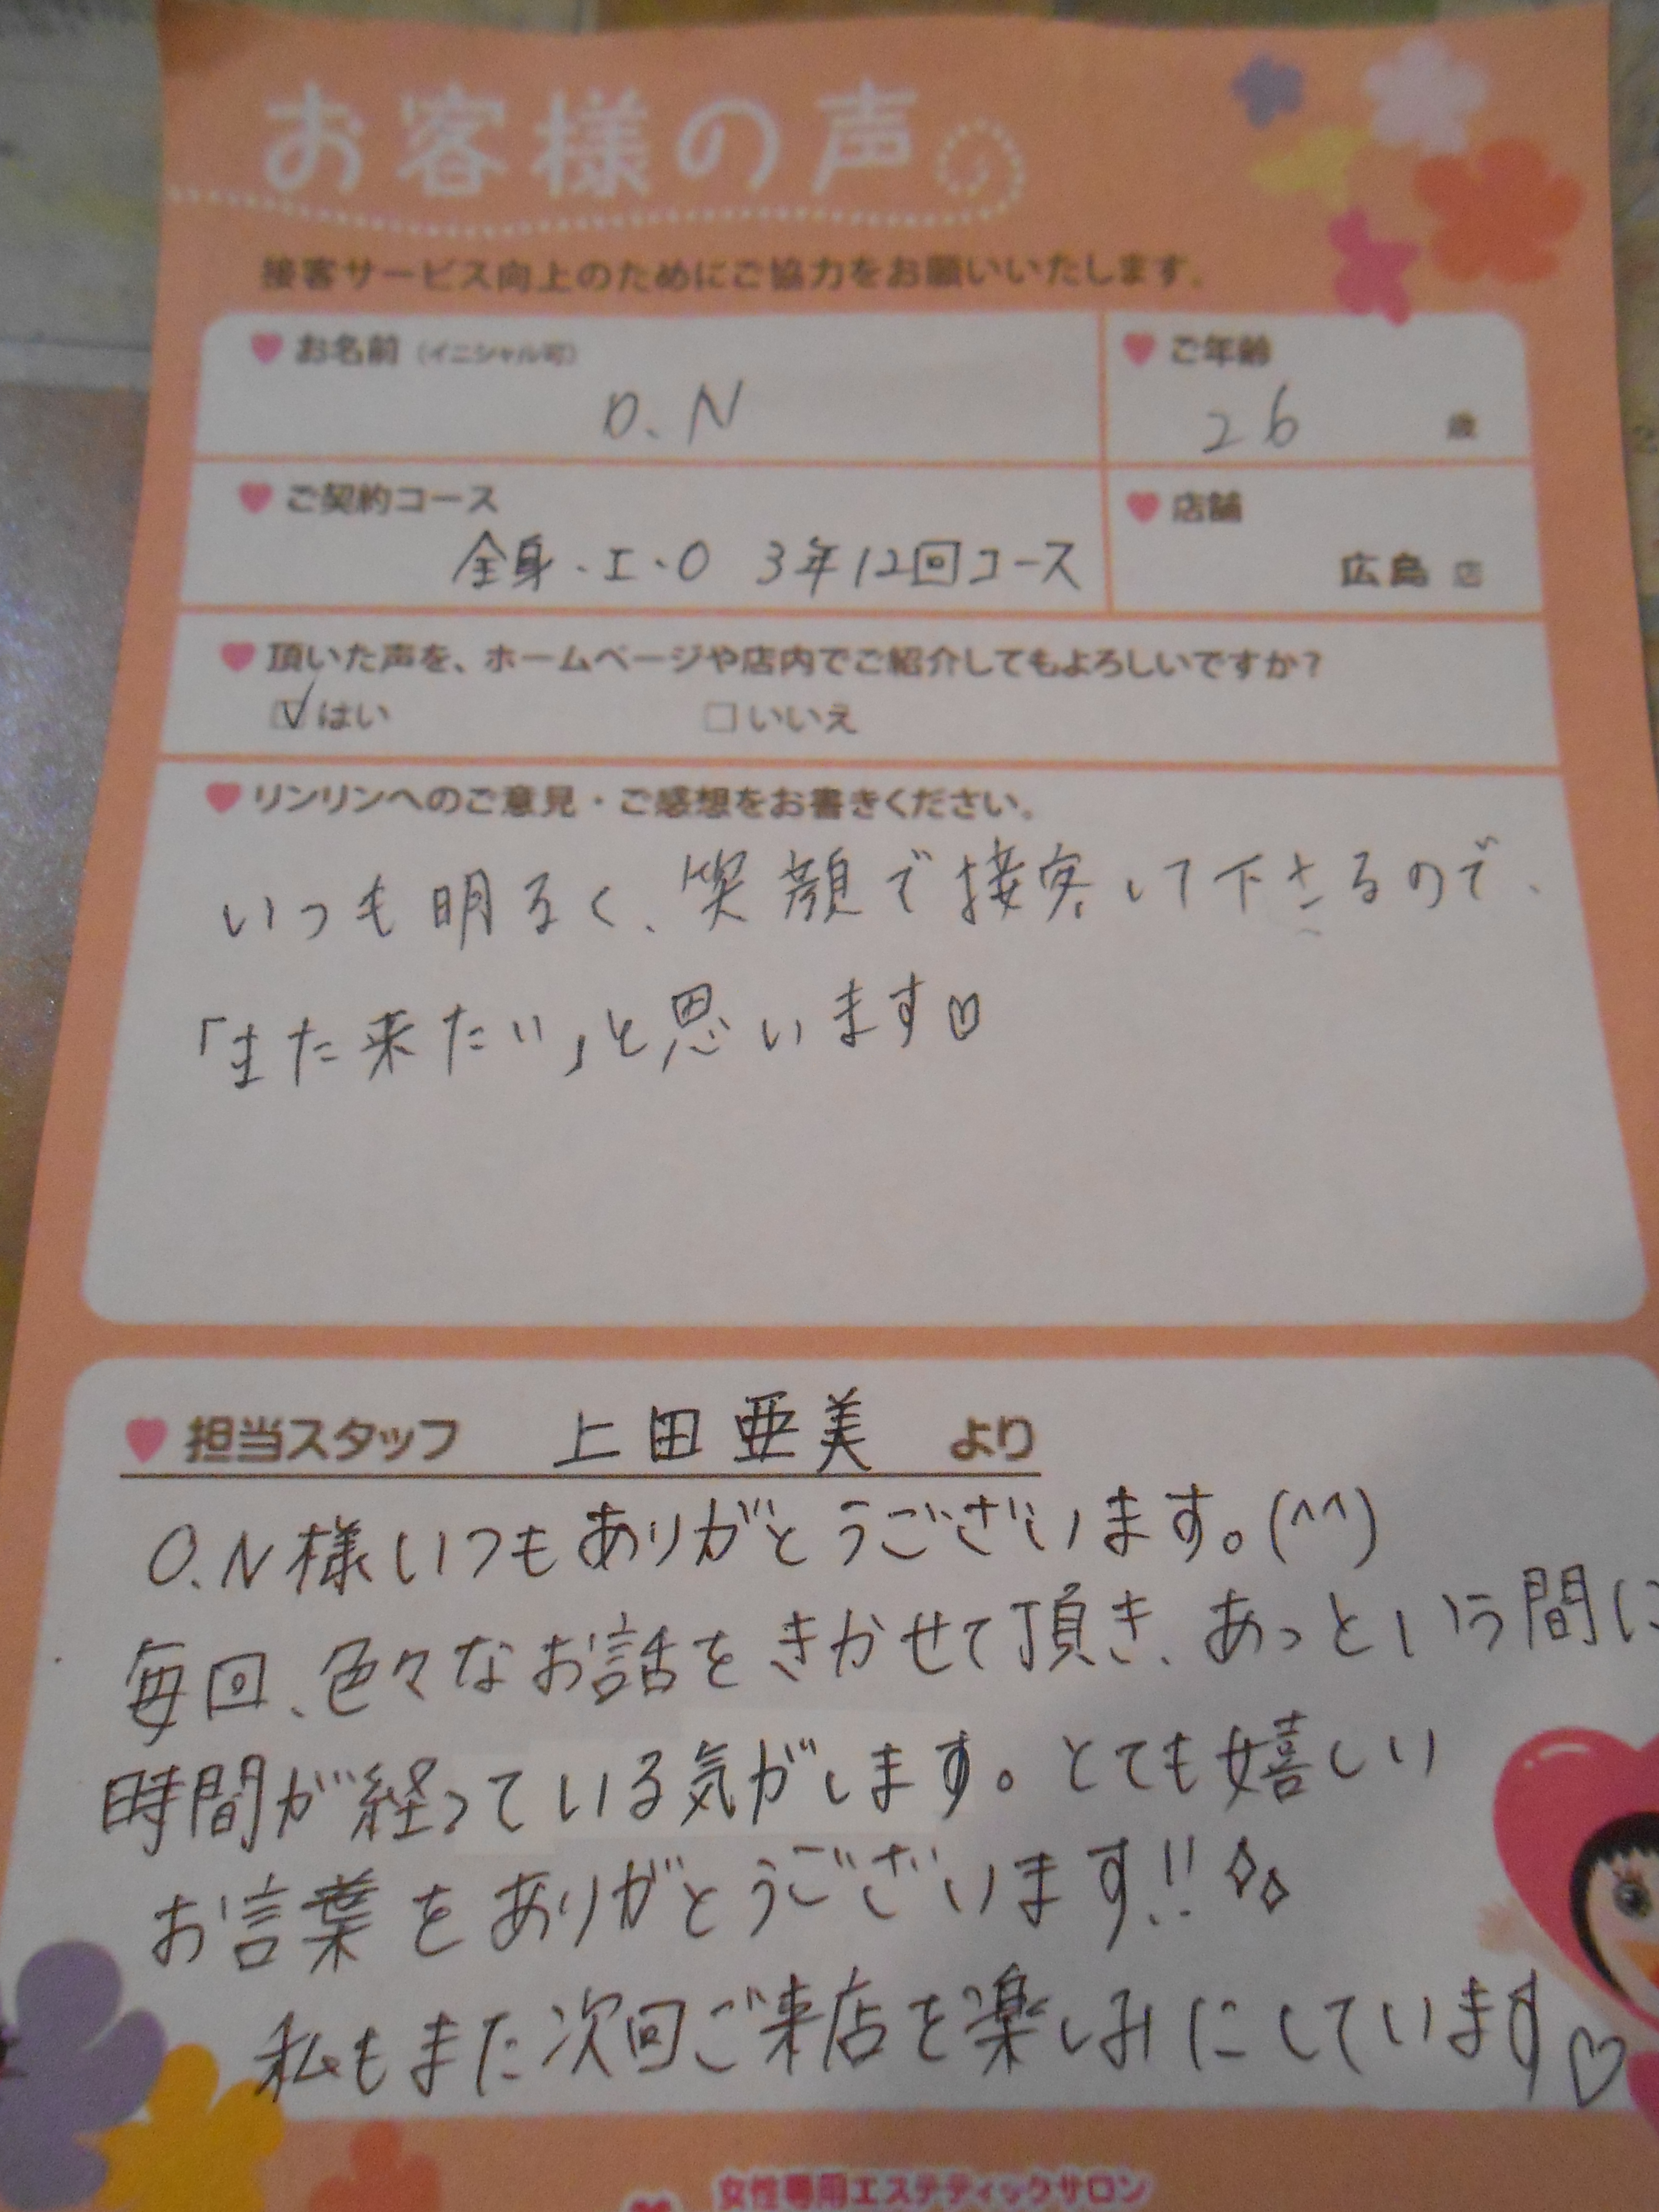 お客様の声
接客サービス向上のためにご協力をお願いいたします。
お名前(イニシャル可)
O.N
ご年齢
26 歳
ご契約コース
全身・I・O 3年12回コース
店舗
広島 店
頂いた声を、ホームページや店内でご紹介してもよろしいですか？
☑はい □いいえ
リンリンへのご意見・ご感想をお書きください。
いつも明るく、笑顔で接客して下さるので、
「また来たい」と思います♡
担当スタッフ 上田亜美 より
O.N様いつもありがとうございます。(^^)
毎回、色々なお話をきかせて頂き、あっという間に
時間が経っている気がします。とても嬉しい
お言葉をありがとうございます!!
私もまた次回ご来店を楽しみにしています♡
女性専用エステティックサロン